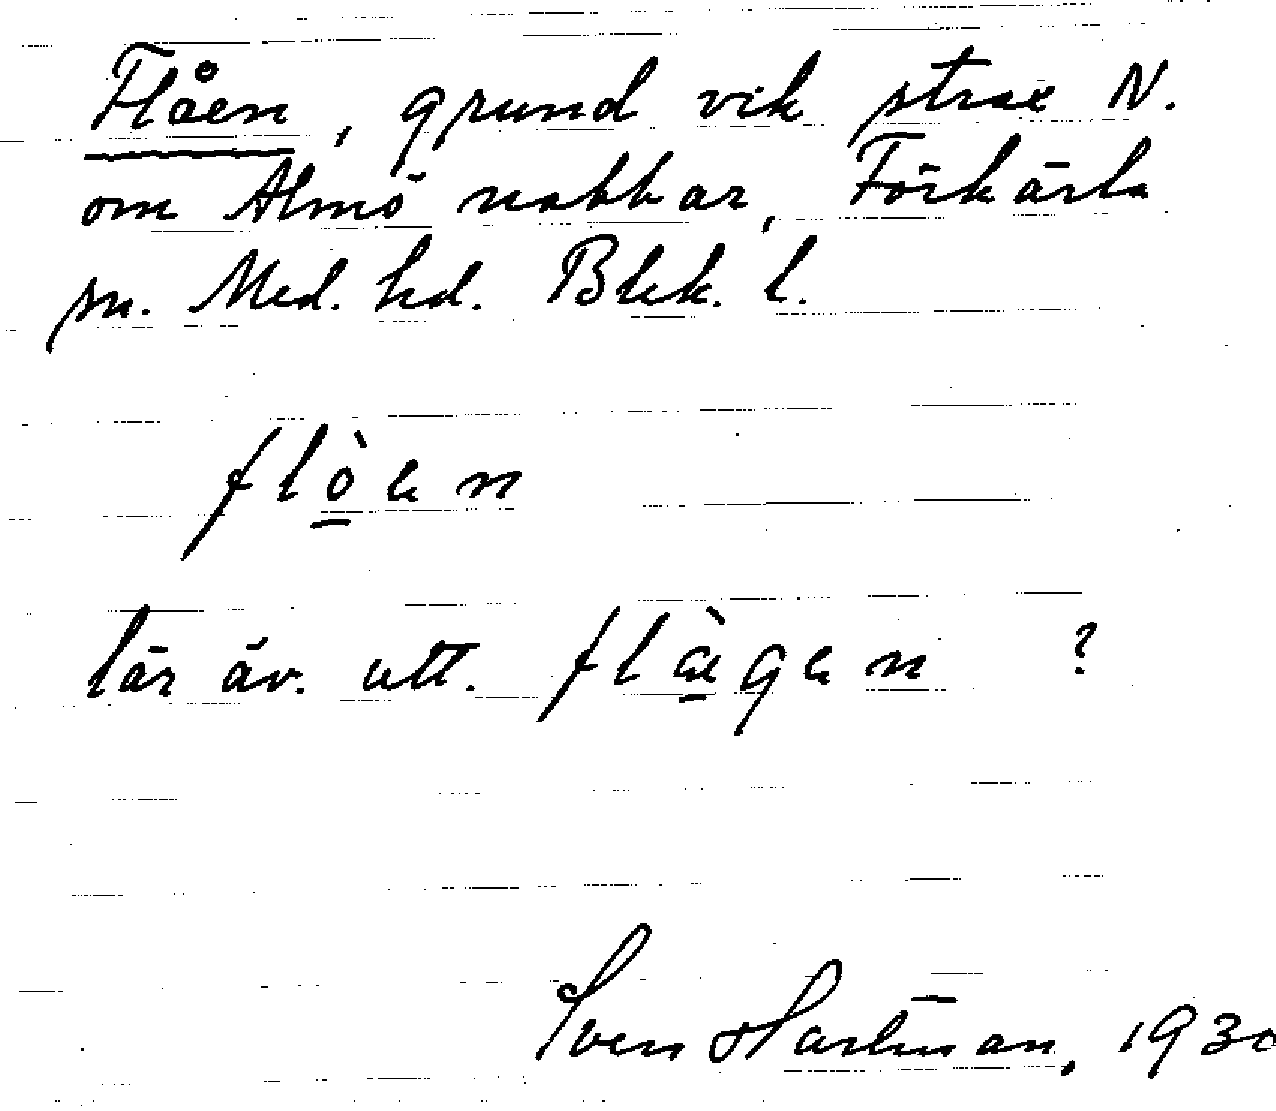 Flåen, grund vik strax N.
om Almö nabbar, Förkärla
sn. Med. hd. Blek. l.
flò̲en
lär äv. utt. flæ̲̀gen ?
Sven Hartman, 1930